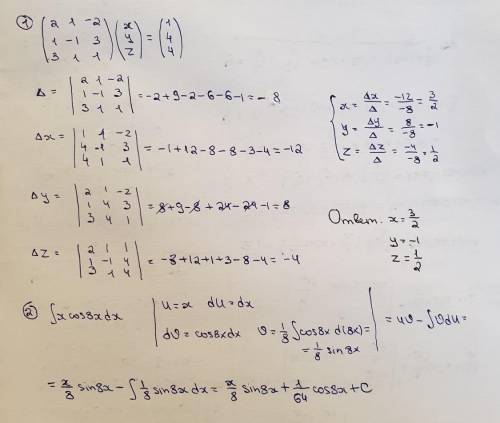 ① (2 1 -2; 1 -1 3; 3 1 1) (x; y; z) = (1; 4; 4)
Δ = |2 1 -2; 1 -1 3; 3 1 1| = -2+9-2-6-6-1 = -8
Δx = |1 1 -2; 4 -1 3; 4 1 1| = -1+12-8-8-3-4 = -12
x = Δx/Δ = -12/-8 = 3/2
y = Δy/Δ = 8/-8 = -1
z = Δz/Δ = -4/-8 = 1/2
Δy = |2 1 -2; 1 4 3; 3 4 1| = 8+9-8+24-24-1 = 8
Δz = |2 1 1; 1 -1 4; 3 1 4| = -8+12+1+3-8-4 = -4
Ответ. x = 3/2
y = -1
z = 1/2
② ∫x cos8x dx | u = x du = dx
dv = cos8x dx v = 1/8 ∫cos8x d(8x) =
= 1/8 sin8x | = uv - ∫v du =
= x/8 sin8x - ∫1/8 sin8x dx = x/8 sin8x + 1/64 cos8x + C